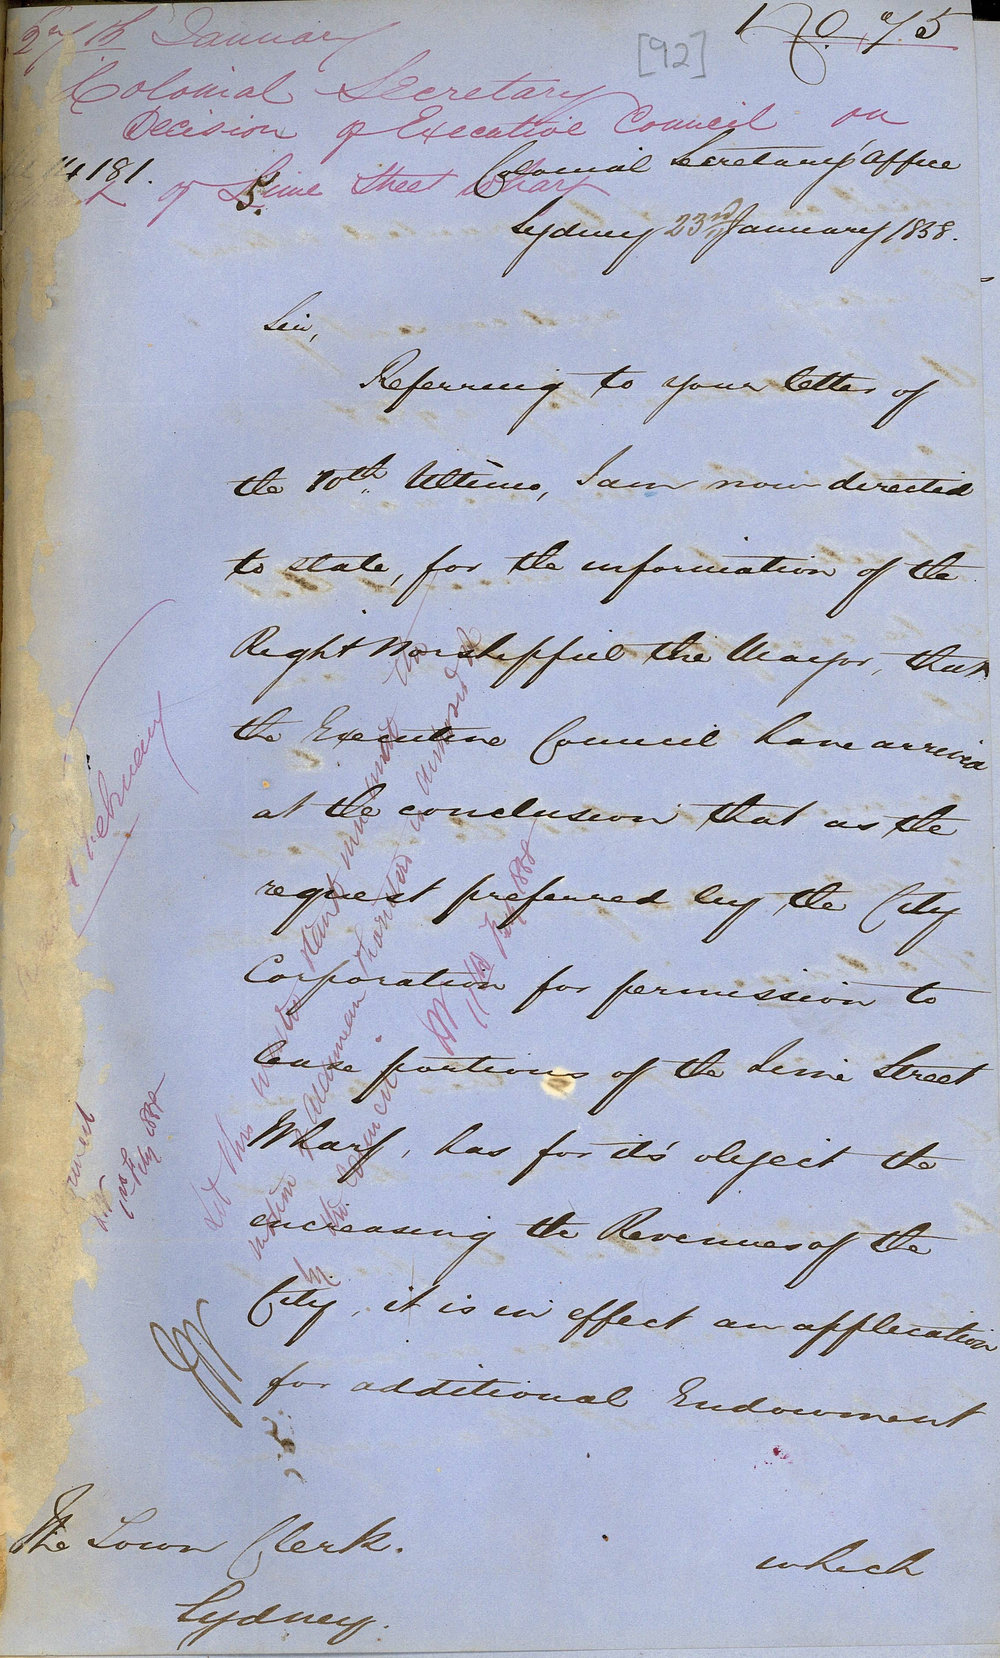 27th January
No. 75
[92]
Colonial Secretary
Decision of Executive Council on
of Lime Street Wharf
14181.
5.
Colonial Secretary's Office
Sydney 23rd January 1858.
Sir,
Referring to your letter of
the 10th Ultimo, I am now directed
to state, for the information of the
Right Worshipful the Mayor, that
the Executive Council have arrived
at the conclusion that as the
request preferred by the City
Corporation for permission to
lease portions of the Lime Street
Wharf, has for it's object the
increasing the Revenues of the
City, it is in effect an application
for additional Endowment
which
The Town Clerk.
Sydney.
February
Let this
motion of Alderman
by the Council
11th Feby 1858
1st Feby 1858